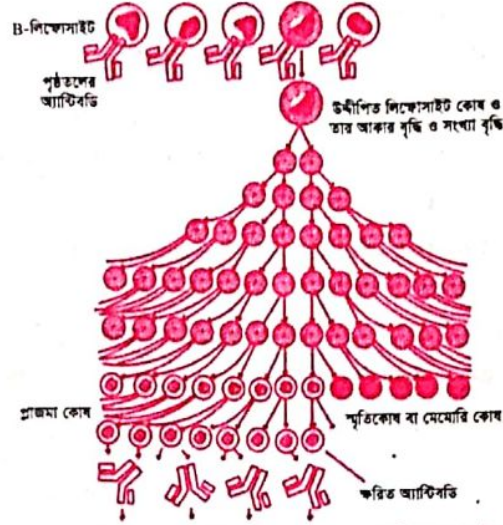 B-লিম্ফোসাইট
পৃষ্ঠতলের
অ্যান্টিবডি
উদ্দীপিত লিম্ফোসাইট কোষ ও
তার আকার বৃদ্ধি ও সংখ্যা বৃদ্ধি
প্লাজমা কোষ
স্মৃতিকোষ বা মেমোরি কোষ
ক্ষরিত অ্যান্টিবডি